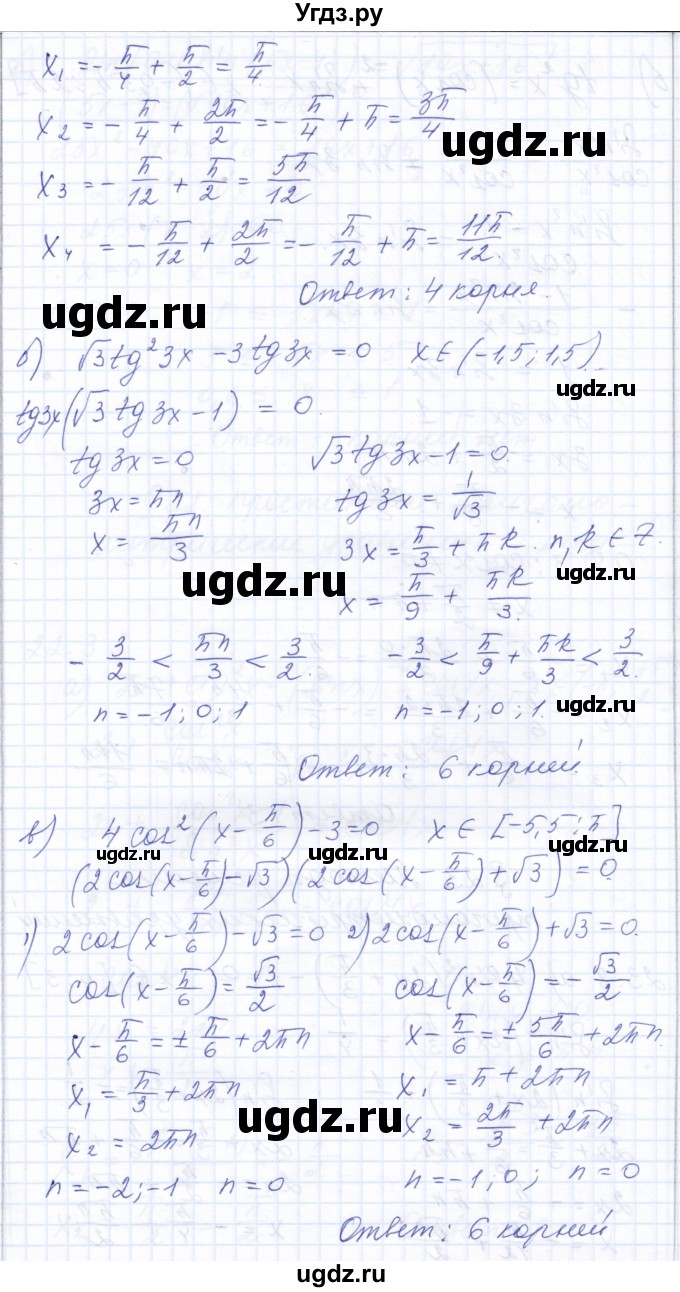 Угдз.ру
x₁ = -π/4 + π/2 = π/4.
x₂ = -π/4 + 2π/2 = -π/4 + π = 3π/4
x₃ = -π/12 + π/2 = 5π/12
x₄ = -π/12 + 2π/2 = -π/12 + π = 11π/12.
Ответ: 4 корня.
ugdz.ru ugdz.ru
б) √3tg²3x - 3tg3x = 0 x∈(-1,5; 1,5).
tg3x(√3tg3x - 1) = 0.
tg3x = 0 √3tg3x - 1 = 0.
3x = πn tg3x = 1/√3
x = πn/3 3x = π/3 + πk. n,k∈Z.
ugdz.ru ugdz.ru
x = π/9 + πk/3.
-3/2 < πn/3 < 3/2. -3/2 < π/9 + πk/3 < 3/2.
n = -1; 0; 1 n = -1; 0; 1.
ugdz.ru
Ответ: 6 корней.
в) 4cos²(x - π/6) - 3 = 0 x∈[-5,5; π]
ugdz.ru ugdz.ru ugdz.ru
(2cos(x - π/6) - √3)(2cos(x - π/6) + √3) = 0.
1) 2cos(x - π/6) - √3 = 0 2) 2cos(x - π/6) + √3 = 0.
cos(x - π/6) = √3/2 cos(x - π/6) = -√3/2
x - π/6 = ± π/6 + 2πn x - π/6 = ± 5π/6 + 2πn.
x₁ = π/3 + 2πn x₁ = π + 2πn
ugdz.ru
x₂ = 2πn x₂ = 2π/3 + 2πn
n = -2; -1 n = 0 n = -1; 0; n = 0
Ответ: 6 корней
ugdz.ru